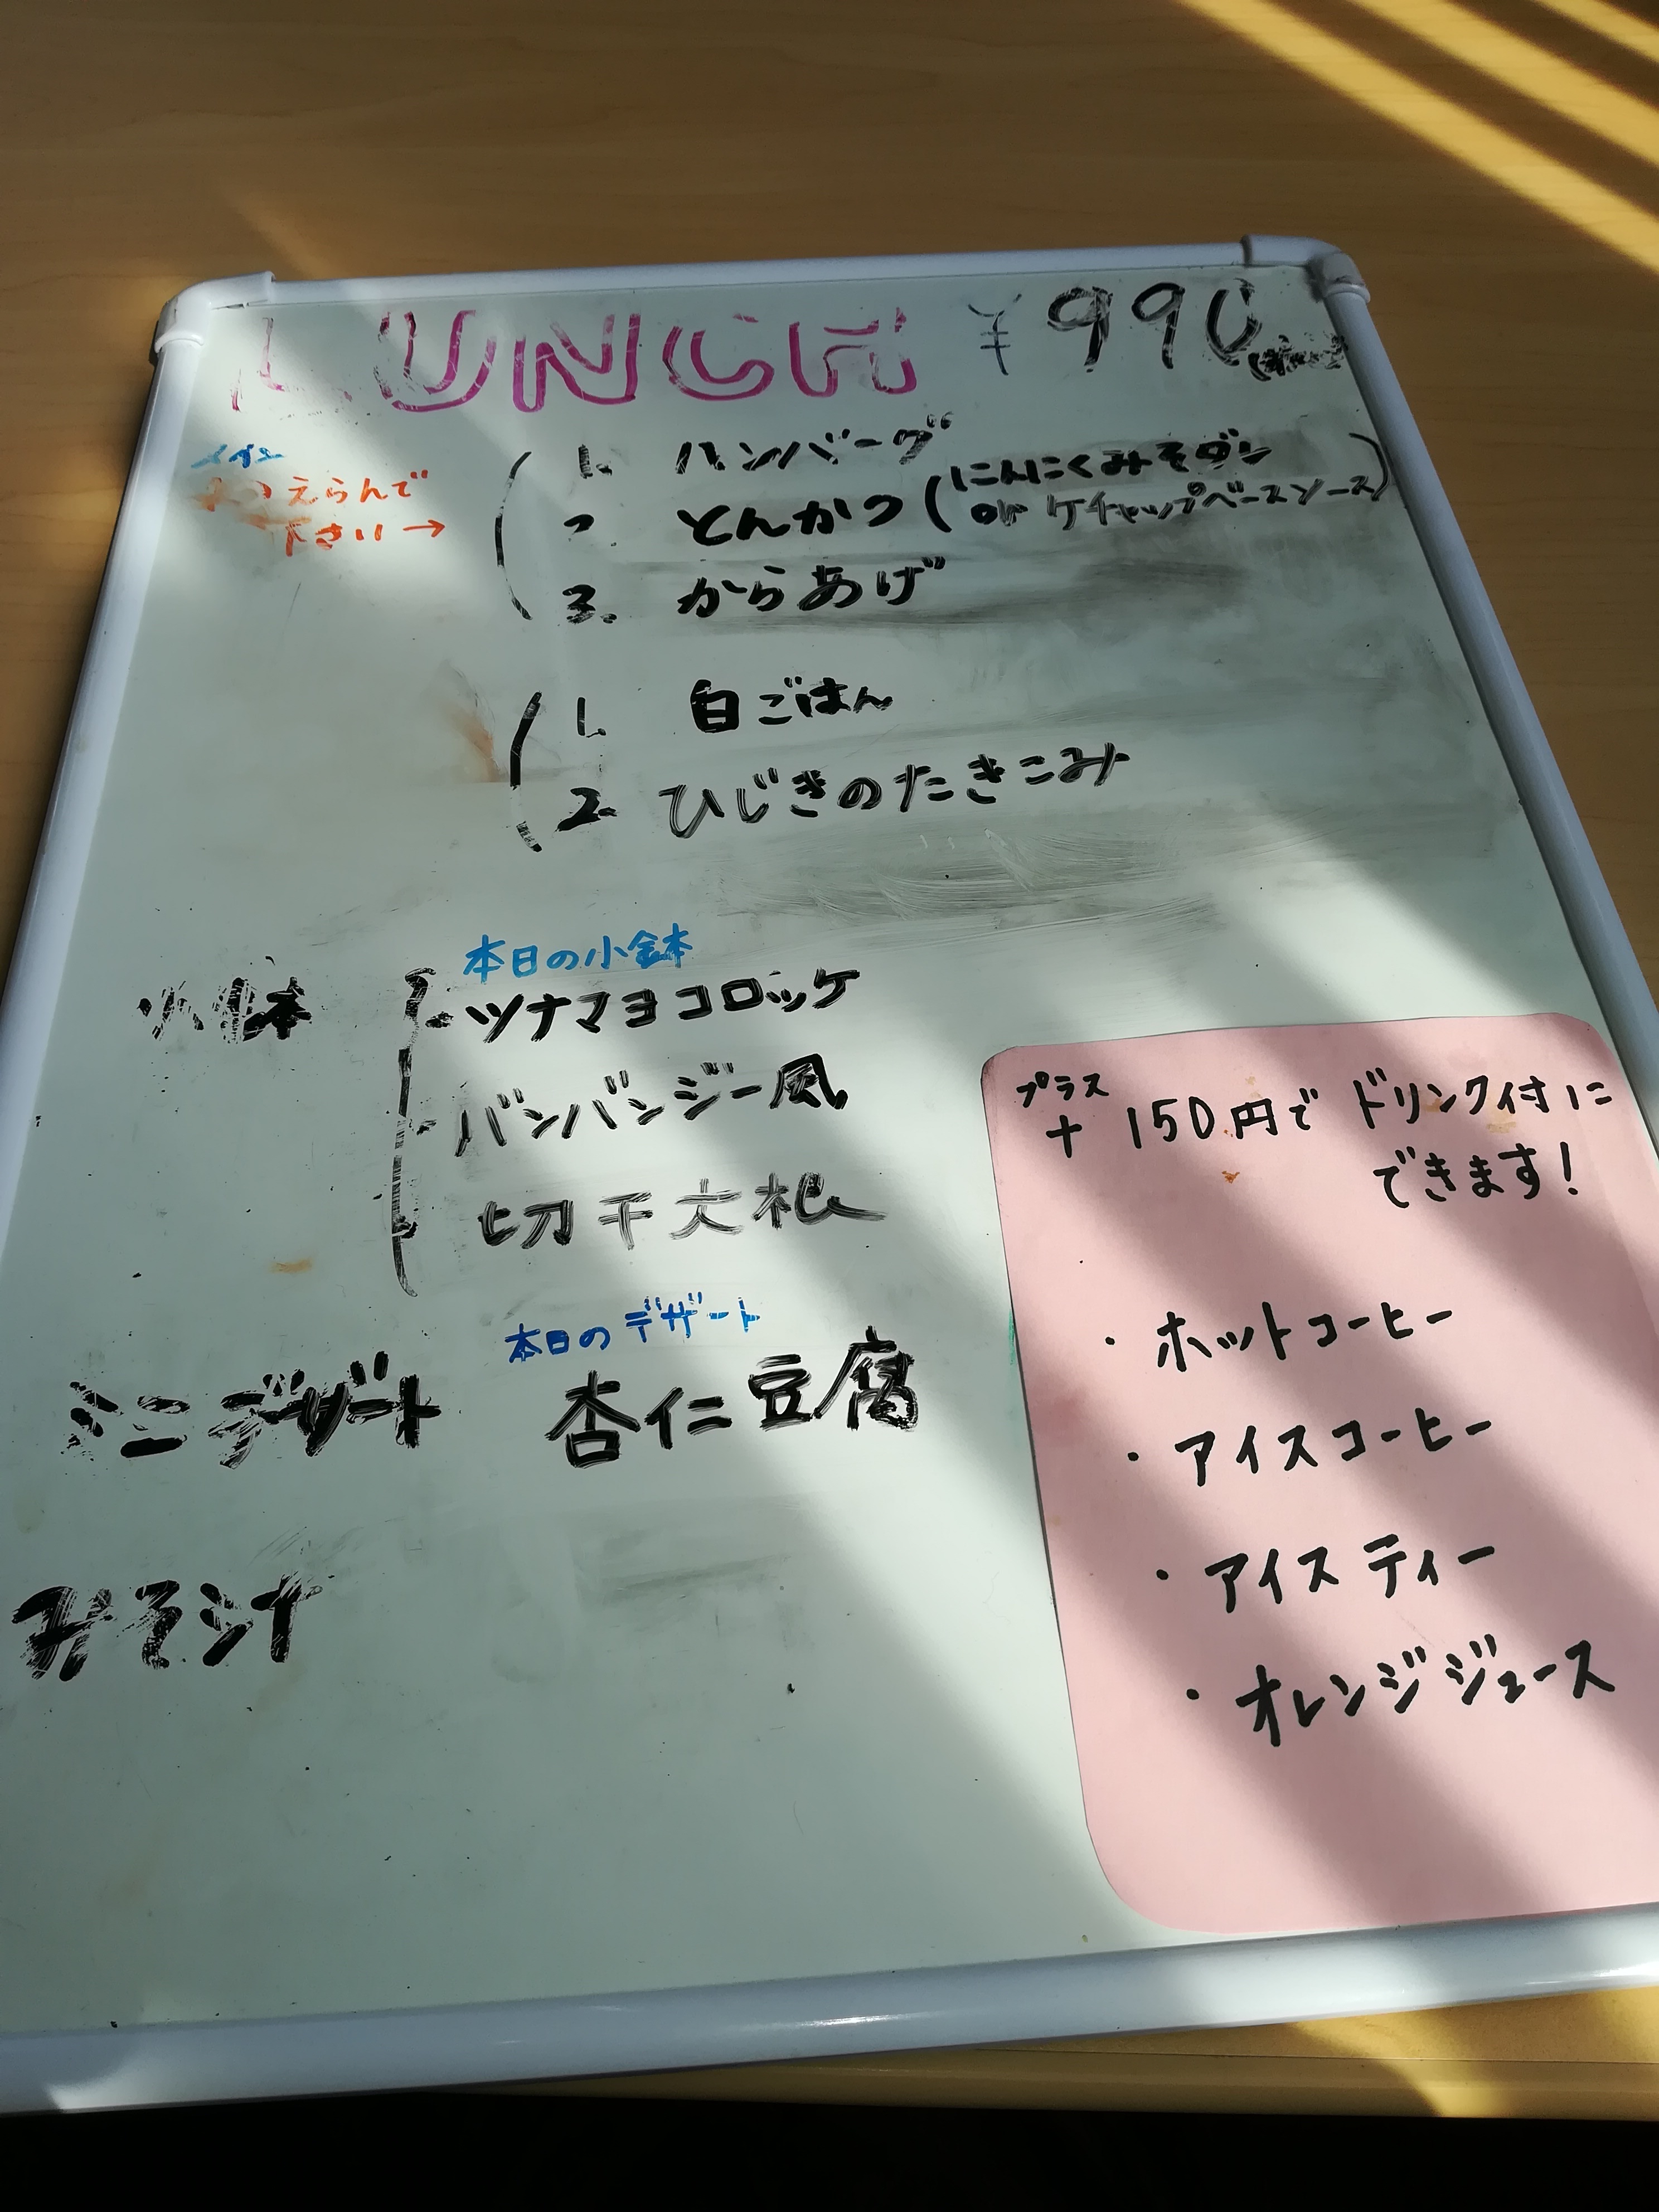 LUNCH ¥990
メイン
えらんで
下さい→
1. ハンバーグ
2 とんかつ(にんにくみそダレ
or ケチャップベースソース)
3. からあげ
1. 白ごはん
2 ひじきのたきこみ
小鉢
本日の小鉢
ツナマヨコロッケ
バンバンジー風
切干大根
ミニデザート
本日のデザート
杏仁豆腐
みそ汁
プラス
+ 150円で ドリンク付に
できます!
・ホットコーヒー
・アイスコーヒー
・アイスティー
・オレンジジュース